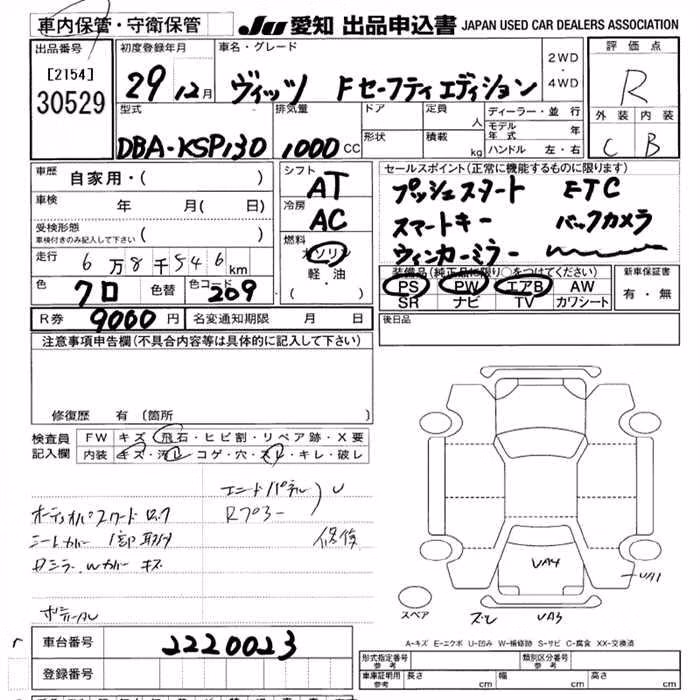 車内保管・守衛保管
JU 愛知 出品申込書 JAPAN USED CAR DEALERS ASSOCIATION
出品番号
[2154]
30529
初度登録年月
29 12月
車名・グレード
ヴィッツ Fセーフティエディション
2WD
・
4WD
評価点
R
外装 内装
C B
型式
DBA-KSP130
排気量
1000 CC
ドア
形状
定員
人
積載
kg
ディーラー・並行
モデル年式 年
ハンドル 左・右
車歴
自家用・( )
車検
年 月( 日)
受検形態
車検付きのみ記入して下さい ( )
走行
6万8千546km
色
クロ
色替
色コード
209
シフト
AT
冷房
AC
燃料
ガソリン
軽・油
( ・ )
セールスポイント(正常に機能するものに限ります)
プッシュスタート ETC
スマートキー バックカメラ
ウィンカーミラー
装備品(純正品に限り○をつけてください)
PS PW エアB AW
SR ナビ TV カワシート
新車保証書
有・無
R券 9000円 名変通知期限 月 日
後日品
注意事項申告欄(不具合内容等は具体的に記入して下さい)
修復歴 有(箇所 )
検査員
記入欄
FW キズ・飛石・ヒビ割・リペア跡・X要
内装 キズ・汚レ・コゲ・穴・スレ・キレ・破レ
エンドパネル U
Rフロー
修復
シートカバー
キズ
UA4
UA3
スペア
A-キズ E-エクボ U-凹み W-補修跡 S-サビ C-腐食 XX-交換済
車台番号
2220023
登録番号
形式指定番号
参考
類別区分番号
参考
車庫証明用
参考
長さ cm 幅 cm 高さ cm